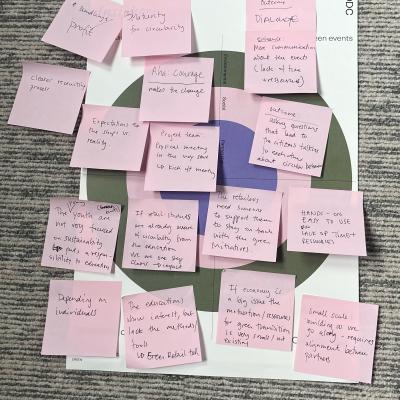 profit
Maturity
for circularity
Outcome
DIPLOMA
DDC
en events
More communication
about the events
(lack of time
+ ressources)
Clearer recruiting
proces
Aha: Courage
makes the change
Expectations to
the shops vs
reality.
Project team
Physical meeting
in the very start
kick off meeting
outcome:
asking questions
that lead to
the citizens talking
to each other
about circular
The youth are
not very focused
on sustainability
and a respon-
sibility to
If retail students
are already aware
of circularity from
the education
we are very
close to impact
The retailers
need someone
to support them
to stay on track
with the green
initiatives
HANDS-ON
EASY TO USE
LACK OF TIME+
RESSOURCES
Depending on
individuals
The educations
show interest, but
lack the methods/
tools
Green Retail
If economy is
a big issue the
motivation/ressources
for green transition
is very small/not
existing
Small scale:
building as we
go along - requires
alignment between
partners